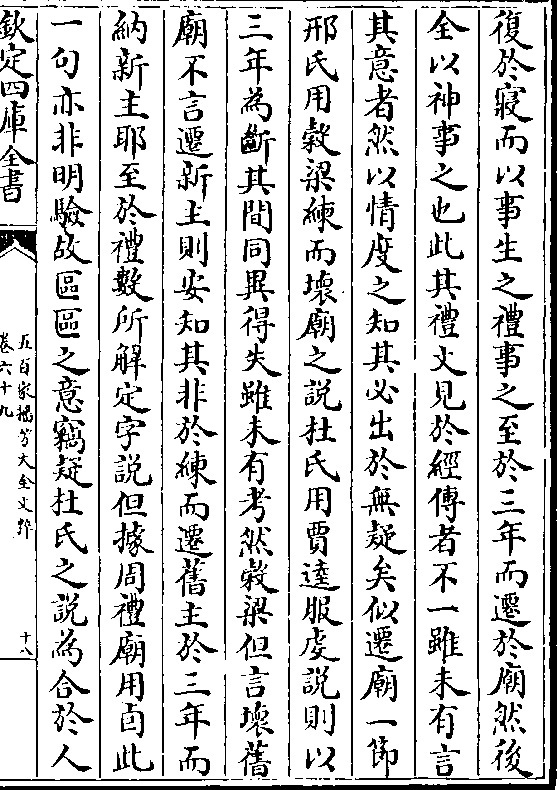 復於寢而以事生之禮事之至於三年而遷於廟然後
全以神事之也此其禮文見於經傳者不一雖未有言
其意者然以情度之知其必出於無疑矣似遷廟一節
邢氏用穀梁練而壞廟之說杜氏用賈逵服虔說則以
三年為斷其間同異得失雖未有考然穀梁但言壞舊
廟不言遷新主則安知其非於練而遷舊主於三年而
納新主耶至於禮數所解定字說但據周禮廟用卣此
一句亦非明驗故區區之意竊疑杜氏之說為合於人
欽定四庫全書
五百家播芳大全文粹
卷六十九
十八